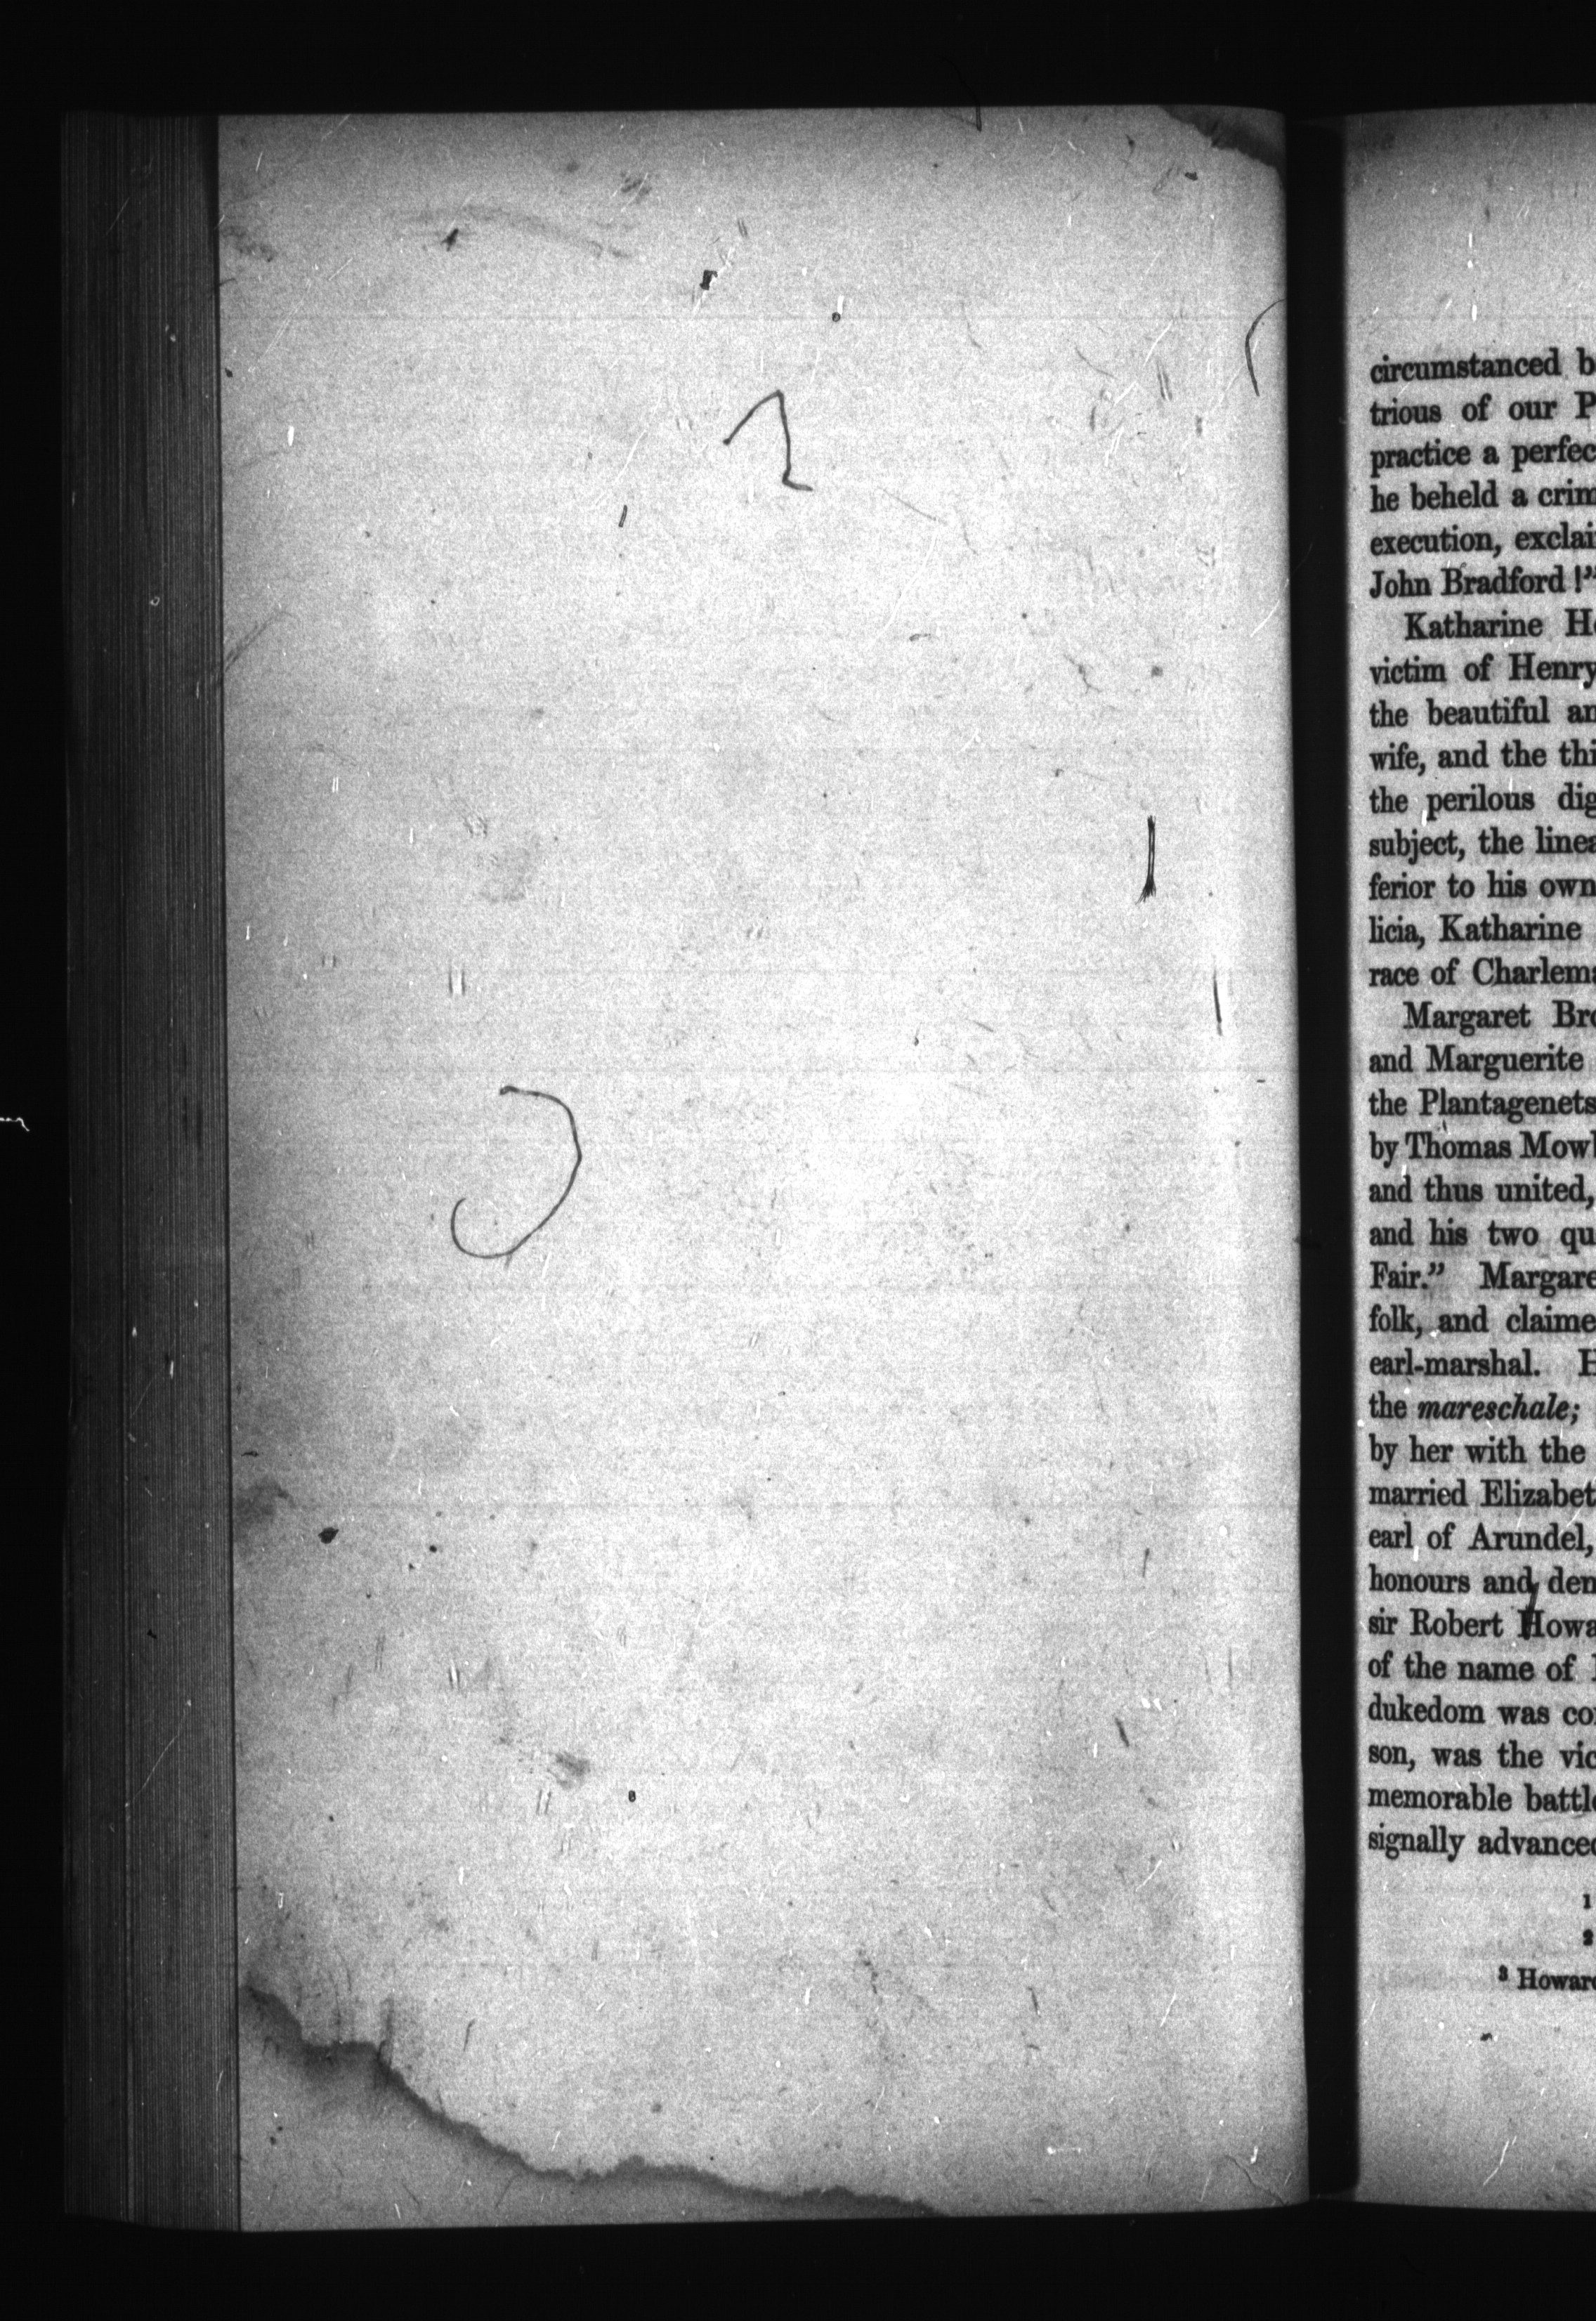 circumstanced b
trious of our P
practice a perfec
he beheld a crim
execution, exclai
John Bradford !"
Katharine Ho
victim of Henry
the beautiful an
wife, and the thi
the perilous dig
subject, the linea
ferior to his own
licia, Katharine
race of Charlema
Margaret Bro
and Marguerite
the Plantagenets
by Thomas Mowb
and thus united,
and his two qu
Fair." Margare
folk, and claime
earl-marshal. H
the mareschale;
by her with the
married Elizabet
earl of Arundel,
honours and den
sir Robert Howa
of the name of
dukedom was co
son, was the vic
memorable battle
signally advanced
1
2
3 Howard